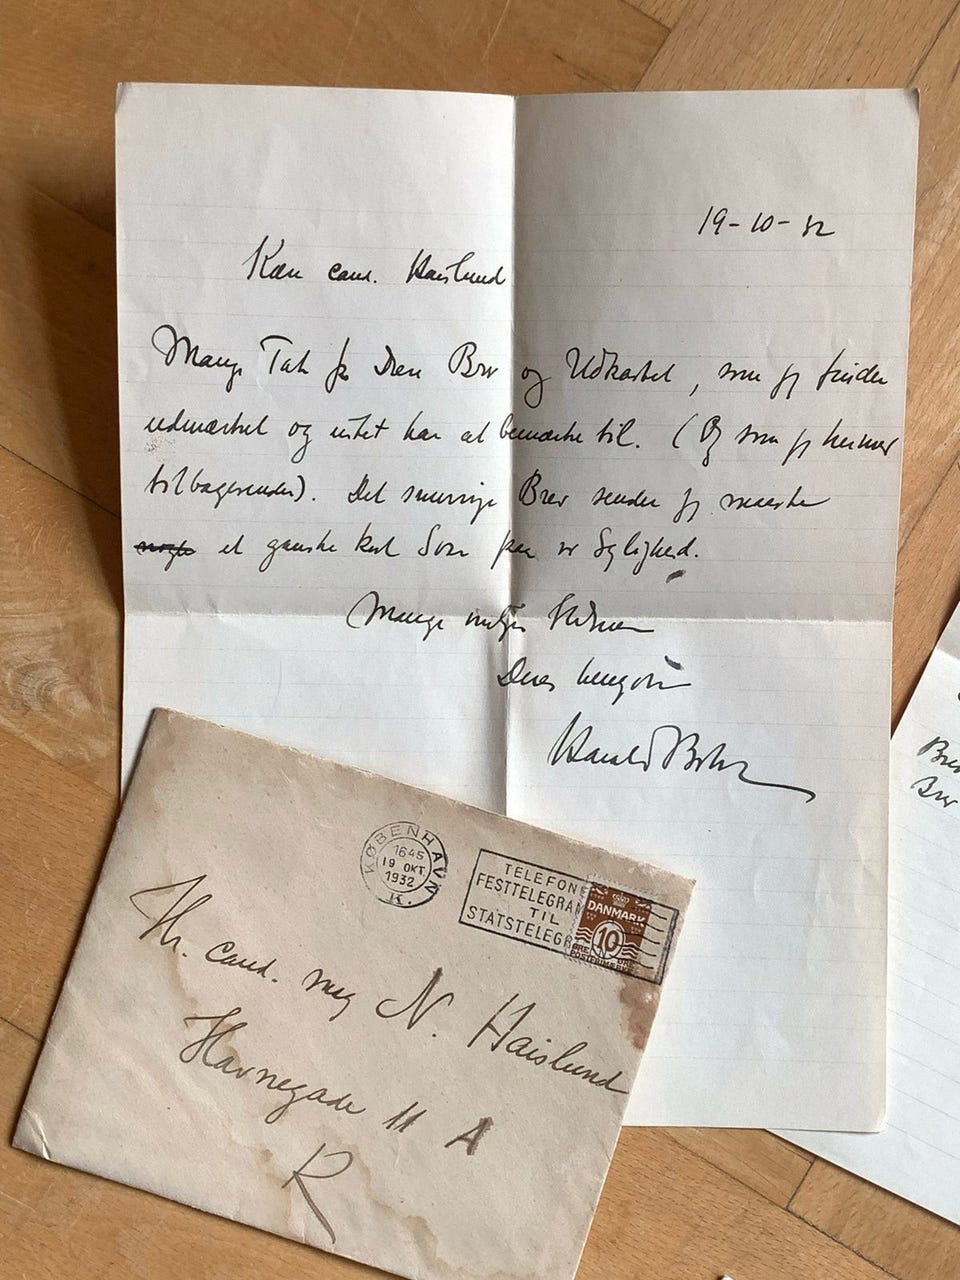 19-10-32
Kære cand. Haislund
Mange Tak for Deres Brev og Udkastet, som jeg finder
udmærket og intet har at bemærke til. (Og som jeg hermed
tilbagesender). Det Brev sender jeg maaske
et ganske kort Svar paa ved Lejlighed.
Mange venlige Hilsner
Deres hengivne
Harald Bohr
KØBENHAVN
1645
19 OKT.
1932
K.
TELEFON
FESTTELEGRA
TIL
STATSTELEGR
DANMARK
10
Hr. cand. mag N. Haislund
Havnegade 11 A
K
Brev